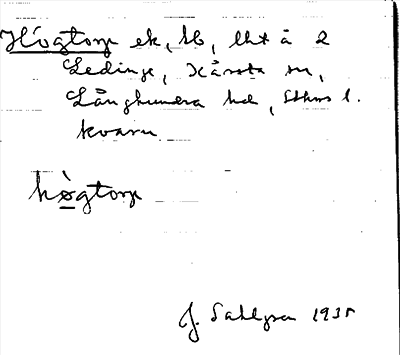 Högtorp ek, Sb, lht å 2
Ledinge, Kårsta sn,
Långhundra hd, Sthms l.
kvarn
hø̀gtorp
J. Sahlgren 1935